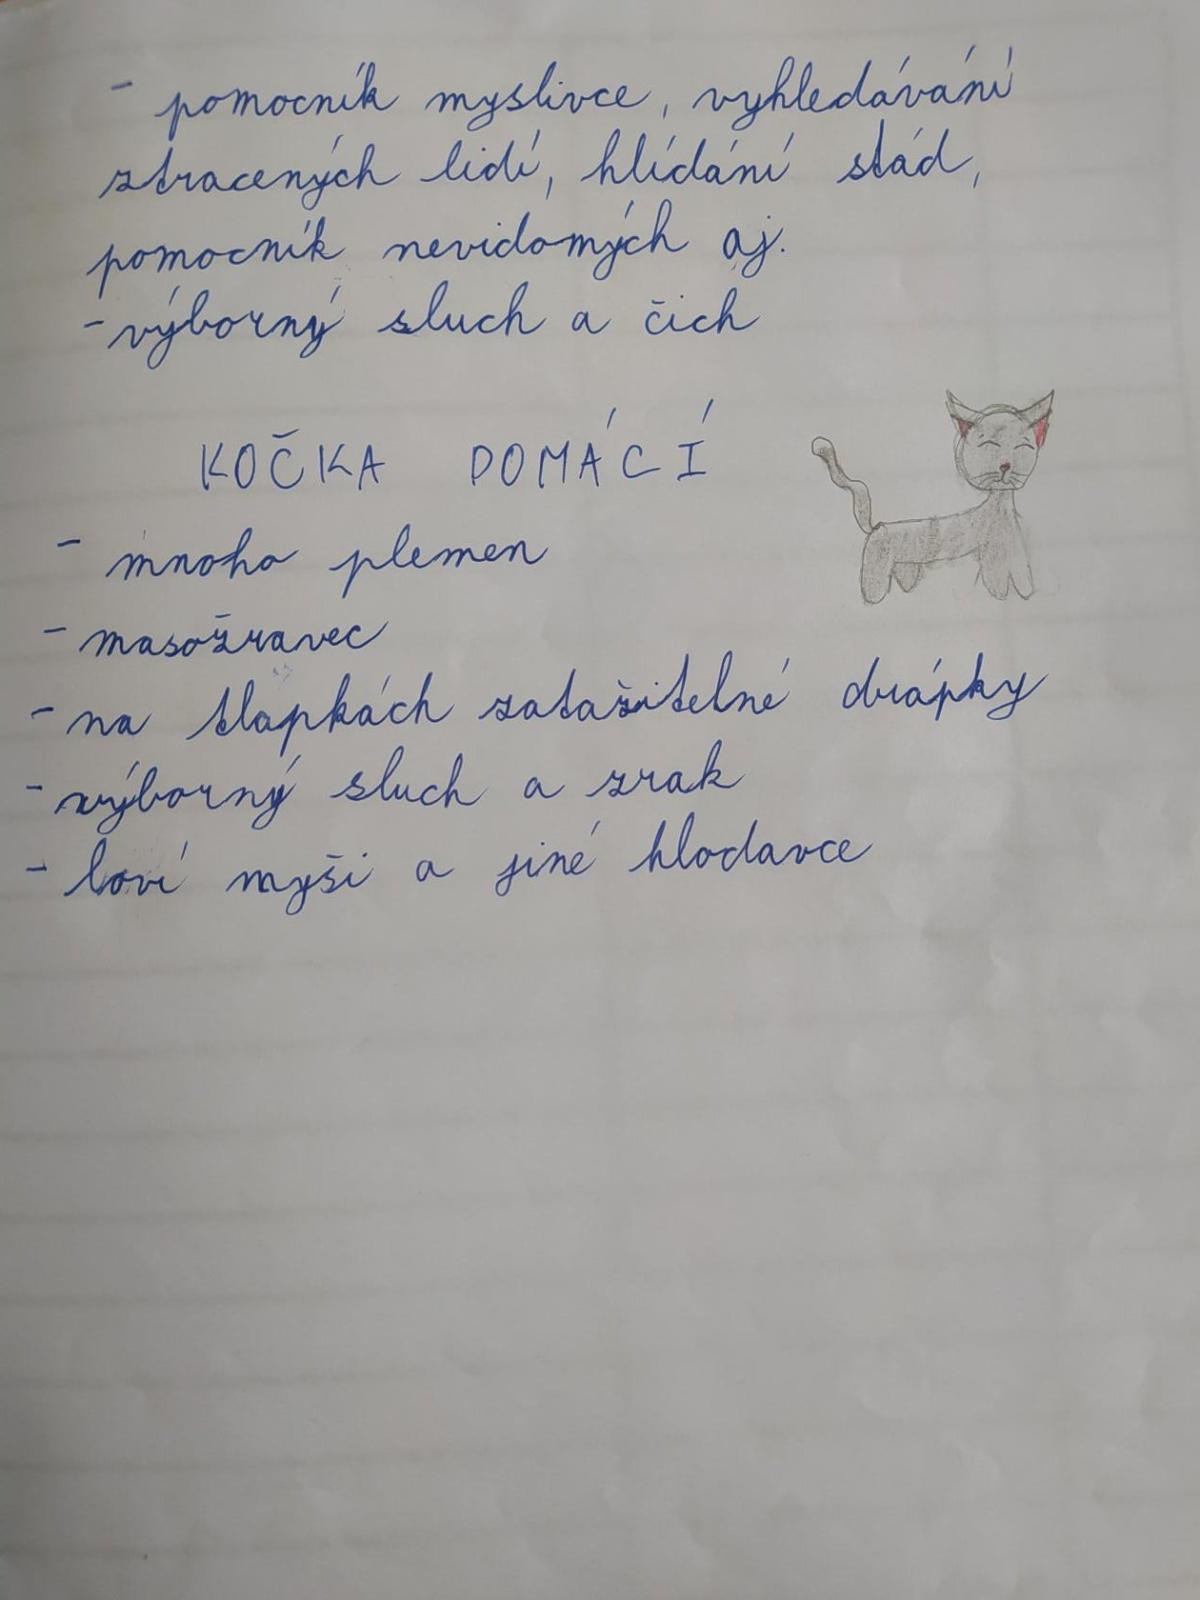 - pomocník myslivce, vyhledávání
ztracených lidí, hlídání stád,
pomocník nevidomých aj.
- výborný sluch a čich
KOČKA DOMÁCÍ
- mnoho plemen
- masožravec
- na tlapkách zatažitelné drápky
- výborný sluch a zrak
- loví myši a jiné hlodavce